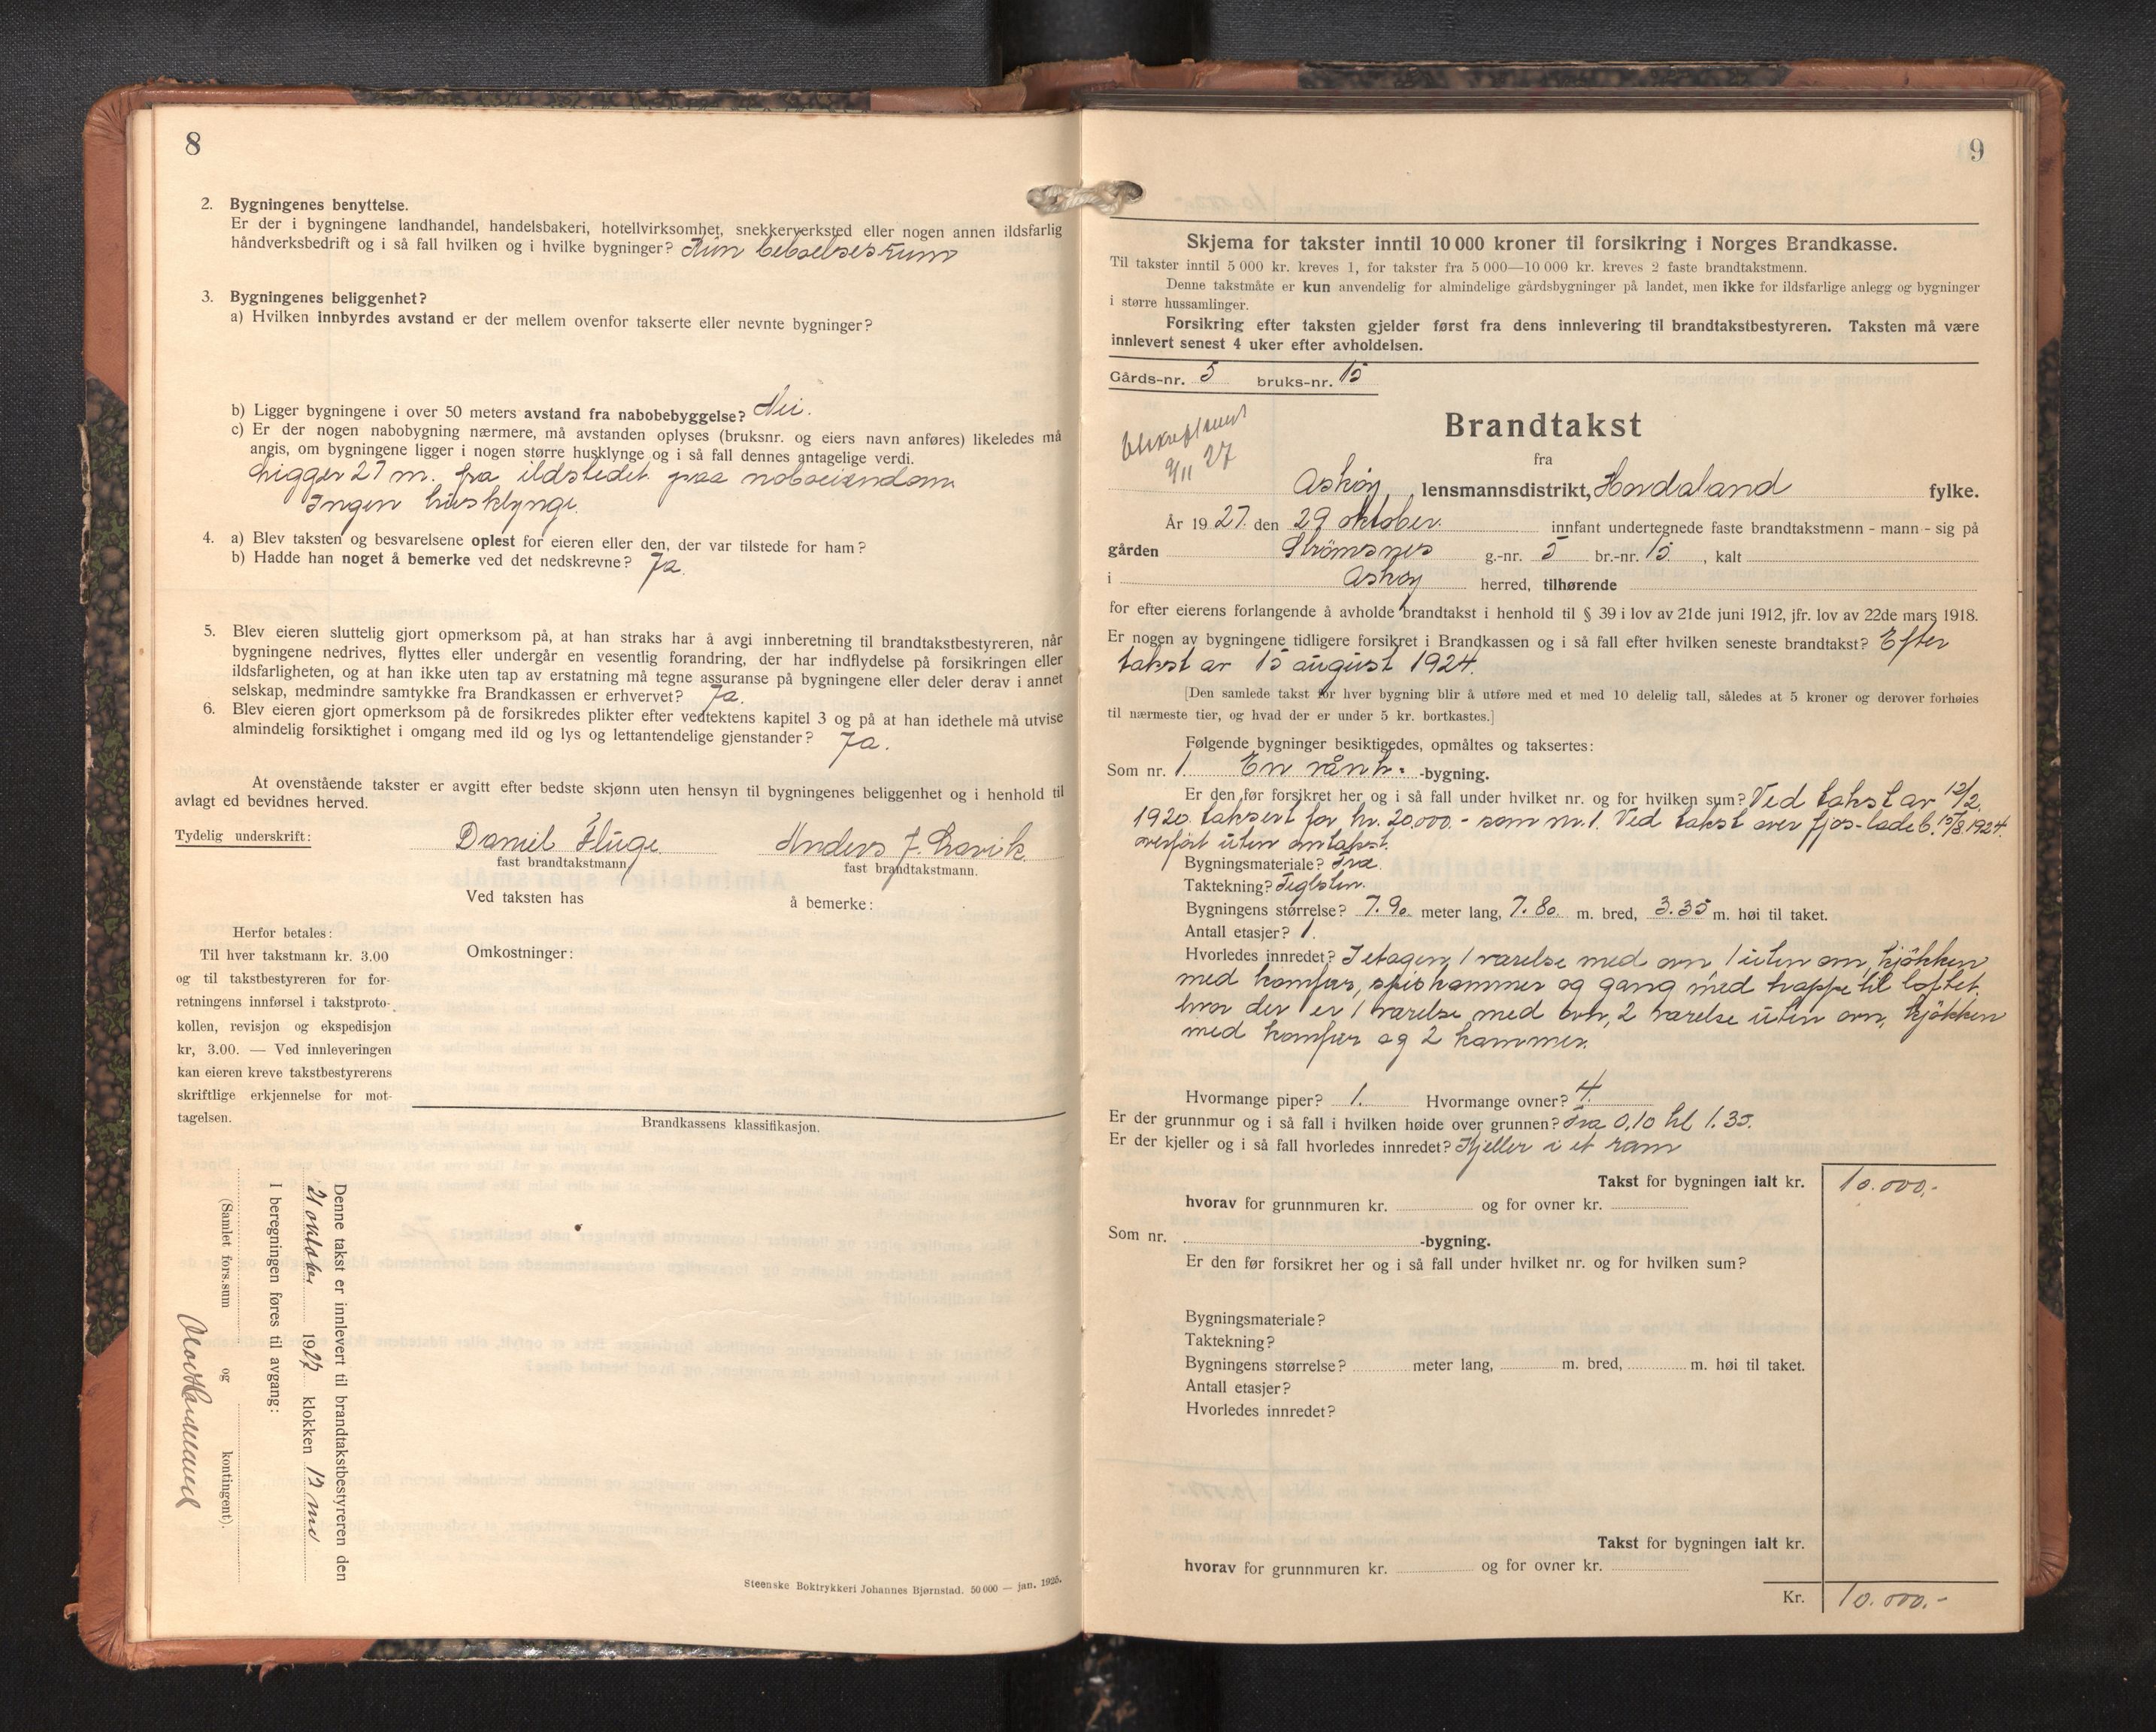 8
2. Bygningenes benyttelse.
Er der i bygningene landhandel, handelsbakeri, hotellvirksomhet, snekkerverksted eller nogen annen ildsfarlig
håndverksbedrift og i så fall hvilken og i hvilke bygninger? Kun beboelsesrum
3. Bygningenes beliggenhet?
a) Hvilken innbyrdes avstand er der mellem ovenfor takserte eller nevnte bygninger?
b) Ligger bygningene i over 50 meters avstand fra nabobebyggelse? Nei.
c) Er der nogen nabobygning nærmere, må avstanden oplyses (bruksnr. og eiers navn anføres) likeledes må
angis, om bygningene ligger i nogen større husklynge og i så fall dennes antagelige verdi.
Ligger 27 m. fra ildstedet paa naboeiendom.
Ingen husklynge.
4. a) Blev taksten og besvarelsene oplest for eieren eller den, der var tilstede for ham?
b) Hadde han noget å bemerke ved det nedskrevne? Ja.
5. Blev eieren sluttelig gjort opmerksom på, at han straks har å avgi innberetning til brandtakstbestyreren, når
bygningene nedrives, flyttes eller undergår en vesentlig forandring, der har indflydelse på forsikringen eller
ildsfarligheten, og at han ikke uten tap av erstatning må tegne assuranse på bygningene eller deler derav i annet
selskap, medmindre samtykke fra Brandkassen er erhvervet? Ja.
6. Blev eieren gjort opmerksom på de forsikredes plikter efter vedtektens kapitel 3 og på at han idethele må utvise
almindelig forsiktighet i omgang med ild og lys og lettantendelige gjenstander? Ja.
At ovenstående takster er avgitt efter bedste skjønn uten hensyn til bygningenes beliggenhet og i henhold til
avlagt ed bevidnes herved.
Tydelig underskrift: Daniel Fluge Anders J. Lavik
fast brandtakstmann fast brandtakstmann.
Ved taksten has å bemerke:
Omkostninger:
Herfor betales:
Til hver takstmann kr. 3.00
og til takstbestyreren for for-
retningens innførsel i takstproto-
kollen, revisjon og ekspedisjon
kr, 3.00. — Ved innleveringen
kan eieren kreve takstbestyrerens
skriftlige erkjennelse for mot-
tagelsen.
Brandkassens klassifikasjon.
Denne takst er innlevert til brandtakstbestyreren den
21 oktober 1927 klokken 12 md
I beregningen føres til avgang:
(Samlet fors.sum og kontingent).
Steenske Boktrykkeri Johannes Bjørnstad. 50 000 — jan. 1925.
9
Skjema for takster inntil 10 000 kroner til forsikring i Norges Brandkasse.
Til takster inntil 5 000 kr. kreves 1, for takster fra 5 000—10 000 kr. kreves 2 faste brandtakstmenn.
Denne takstmåte er kun anvendelig for almindelige gårdsbygninger på landet, men ikke for ildsfarlige anlegg og bygninger
i større hussamlinger.
Forsikring efter taksten gjelder først fra dens innlevering til brandtakstbestyreren. Taksten må være
innlevert senest 4 uker efter avholdelsen.
Gårds-nr. 5 bruks-nr. 15
Brandtakst
9/11 27
fra
Askøy lensmannsdistrikt, Hordaland fylke.
År 1927 den 29 oktober innfant undertegnede faste brandtakstmenn - mann - sig på
gården Strømsnes g.-nr. 5 br.-nr. 15, kalt
i Askøy herred, tilhørende
for efter eierens forlangende å avholde brandtakst i henhold til § 39 i lov av 21de juni 1912, jfr. lov av 22de mars 1918.
Er nogen av bygningene tidligere forsikret i Brandkassen og i så fall efter hvilken seneste brandtakst? Efter
takst av 15 august 1924.
[Den samlede takst for hver bygning blir å utføre med et med 10 delelig tall, således at 5 kroner og derover forhøies
til nærmeste tier, og hvad der er under 5 kr. bortkastes.]
Følgende bygninger besiktigedes, opmåltes og taksertes:
Som nr. 1. En vånh. -bygning.
Er den før forsikret her og i så fall under hvilket nr. og for hvilken sum? Ved takst av 12/2
1920 taksert for kr. 20.000.- som nr. 1. Ved takst over fjøs-ladeb. 15/8 1924
overført uten omtakst.
Bygningsmateriale? Træ.
Taktekning? Teglsten.
Bygningens størrelse? 7.90 meter lang, 7.80 m. bred, 3.35 m. høi til taket.
Antall etasjer? 1.
Hvorledes innredet? I etagen 1 værelse med ovn 1 uten ovn, kjøkken
med komfur, spiskammer og gang med trappe til loftet,
hvor der er 1 værelse med ovn, 2 værelse uten ovn, kjøkken
med komfur og 2 kammer.
Hvormange piper? 1. Hvormange ovner? 4.
Er der grunnmur og i så fall i hvilken høide over grunnen? Fra 0,10 til 1.35.
Er der kjeller og i så fall hvorledes innredet? Kjeller i et rum
Takst for bygningen ialt kr. 10.000,-
hvorav for grunnmuren kr. og for ovner kr.
Som nr. -bygning.
Er den før forsikret her og i så fall under hvilket nr. og for hvilken sum?
Bygningsmateriale?
Taktekning?
Bygningens størrelse? meter lang, m. bred, m. høi til taket.
Antall etasjer?
Hvorledes innredet?
Takst for bygningen ialt kr.
hvorav for grunnmuren kr. og for ovner kr.
Kr. 10.000.-